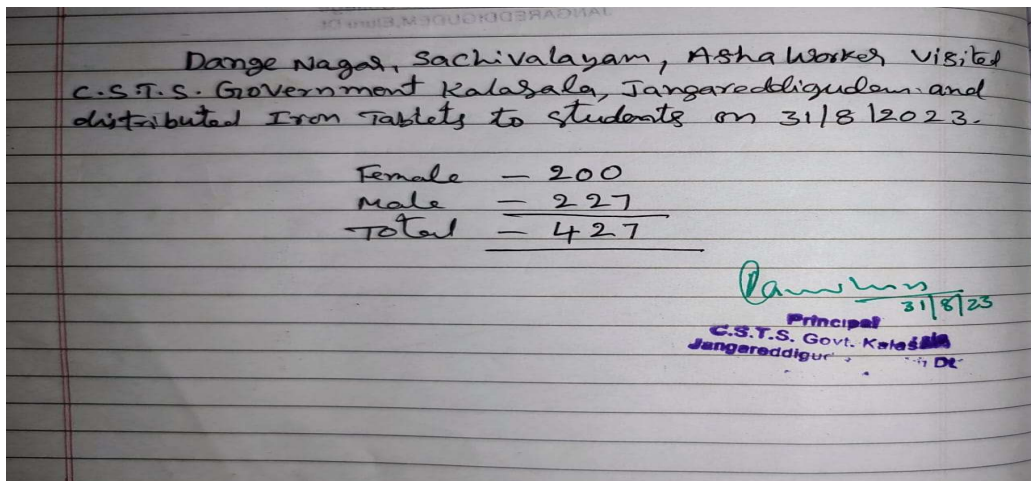 JANGAREDDIGUDEM, Eluru Dt
Dange Nagar, Sachivalayam, Asha Worker visited
C.S.T.S. Government Kalasala, Jangareddigudem and
distributed Iron Tablets to students on 31/8/2023.
Female - 200
Male - 227
Total - 427
31/8/23
Principal
C.S.T.S. Govt. Kalasala
Dt